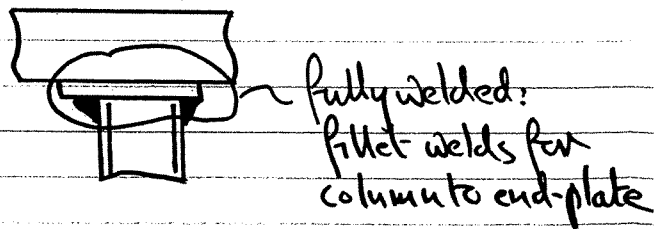 fully welded:
fillet welds for
column to end-plate